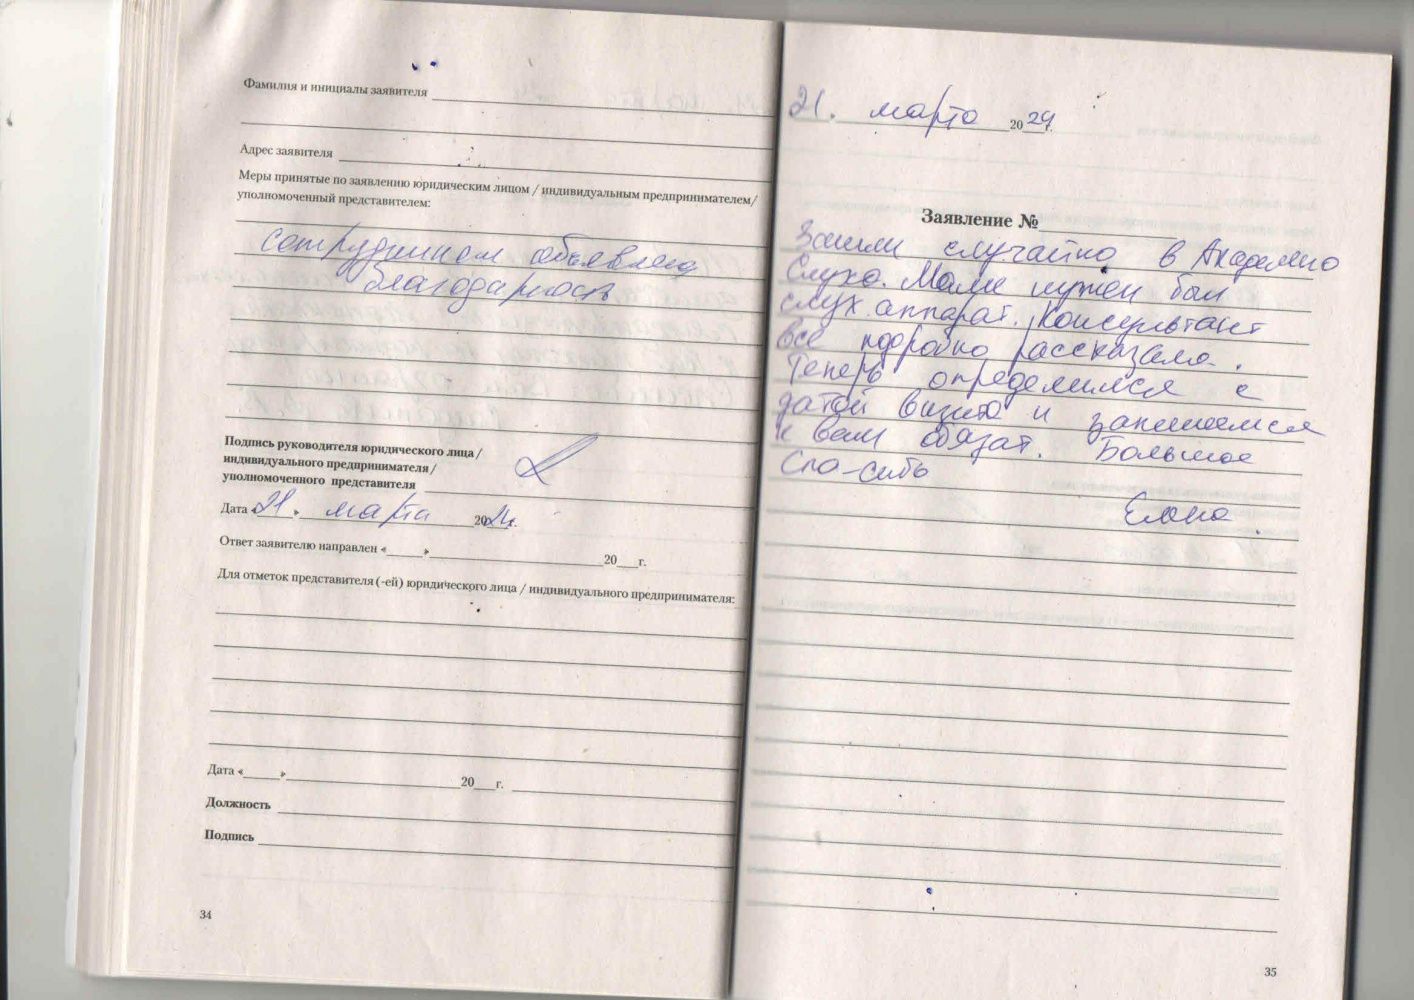 Фамилия и инициалы заявителя
Адрес заявителя
Меры принятые по заявлению юридическим лицом / индивидуальным предпринимателем/
уполномоченный представителем:
сотрудникам объявлена
благодарность
Подпись руководителя юридического лица /
индивидуального предпринимателя /
уполномоченного представителя
Дата «21» марта 2024г.
Ответ заявителю направлен «____»____20___г.
Для отметок представителя (-ей) юридического лица / индивидуального предпринимателя:
Дата «____»____20___г.
Должность
Подпись
34
21. марта 2024г.
Заявление №
Зашли случайно в Академию
Слуха. Маме нужен был
слух. аппарат. Консультант
все подробно рассказала.
Теперь определимся с
датой визита и запишемся
к вам обязат. Большое
Спа-сибо
Елена.
35